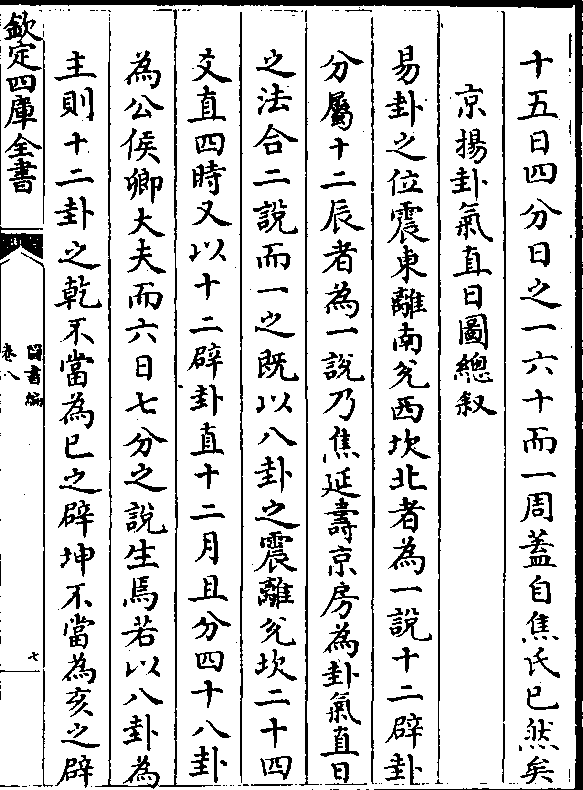 十五日四分日之一六十而一周蓋自焦氏已然矣
京揚卦氣直日圖總叙
易卦之位震東離南兌西坎北者為一說十二辟卦
分屬十二辰者為一說乃焦延壽京房為卦氣直日
之法合二說而一之既以八卦之震離兌坎二十四
爻直四時又以十二辟卦直十二月且分四十八卦
為公侯卿大夫而六日七分之說生焉若以八卦為
主則十二卦之乾不當為巳之辟坤不當為亥之辟
欽定四庫全書
圖書編
卷八
七